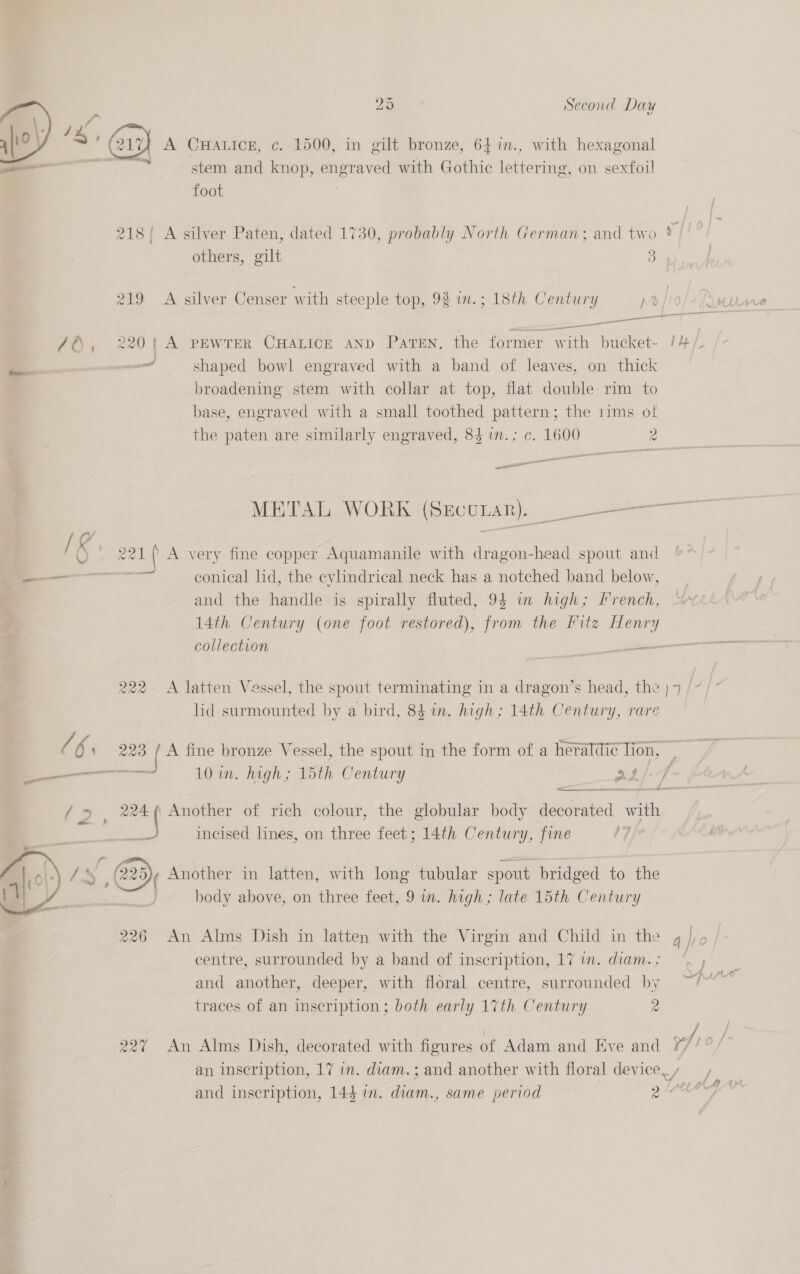 25 Second Day
217 A CHALICE, c. 1500, in gilt bronze, 6¼ in., with hexagonal
stem and knop, engraved with Gothic lettering, on sexfoil
foot
218 A silver Paten, dated 1730, probably North German; and two
others, gilt 3
219 A silver Censer with steeple top, 9¾ in.; 18th Century
18, 220 A PEWTER CHALICE AND PATEN, the former with bucket- 14/
shaped bowl engraved with a band of leaves, on thick
broadening stem with collar at top, flat double rim to
base, engraved with a small toothed pattern; the rims of
the paten are similarly engraved, 8½ in.; c. 1600 2
METAL WORK (SECULAR).
18, 221 A very fine copper Aquamanile with dragon-head spout and
conical lid, the cylindrical neck has a notched band below,
and the handle is spirally fluted, 9½ in high; French,
14th Century (one foot restored), from the Fitz Henry
collection
222 A latten Vessel, the spout terminating in a dragon's head, the 17/-/-
lid surmounted by a bird, 8½ in. high; 14th Century, rare
16, 223 A fine bronze Vessel, the spout in the form of a heraldic lion,
10 in. high; 15th Century 21/-/-
12, 224 Another of rich colour, the globular body decorated with
incised lines, on three feet; 14th Century, fine 17/-
15, 225 Another in latten, with long tubular spout bridged to the
body above, on three feet, 9 in. high; late 15th Century
226 An Alms Dish in latten with the Virgin and Child in the 9/10/-
centre, surrounded by a band of inscription, 17 in. diam.;
and another, deeper, with floral centre, surrounded by
traces of an inscription; both early 17th Century 2
227 An Alms Dish, decorated with figures of Adam and Eve and
an inscription, 17 in. diam.; and another with floral device,
and inscription, 14½ in. diam., same period 2